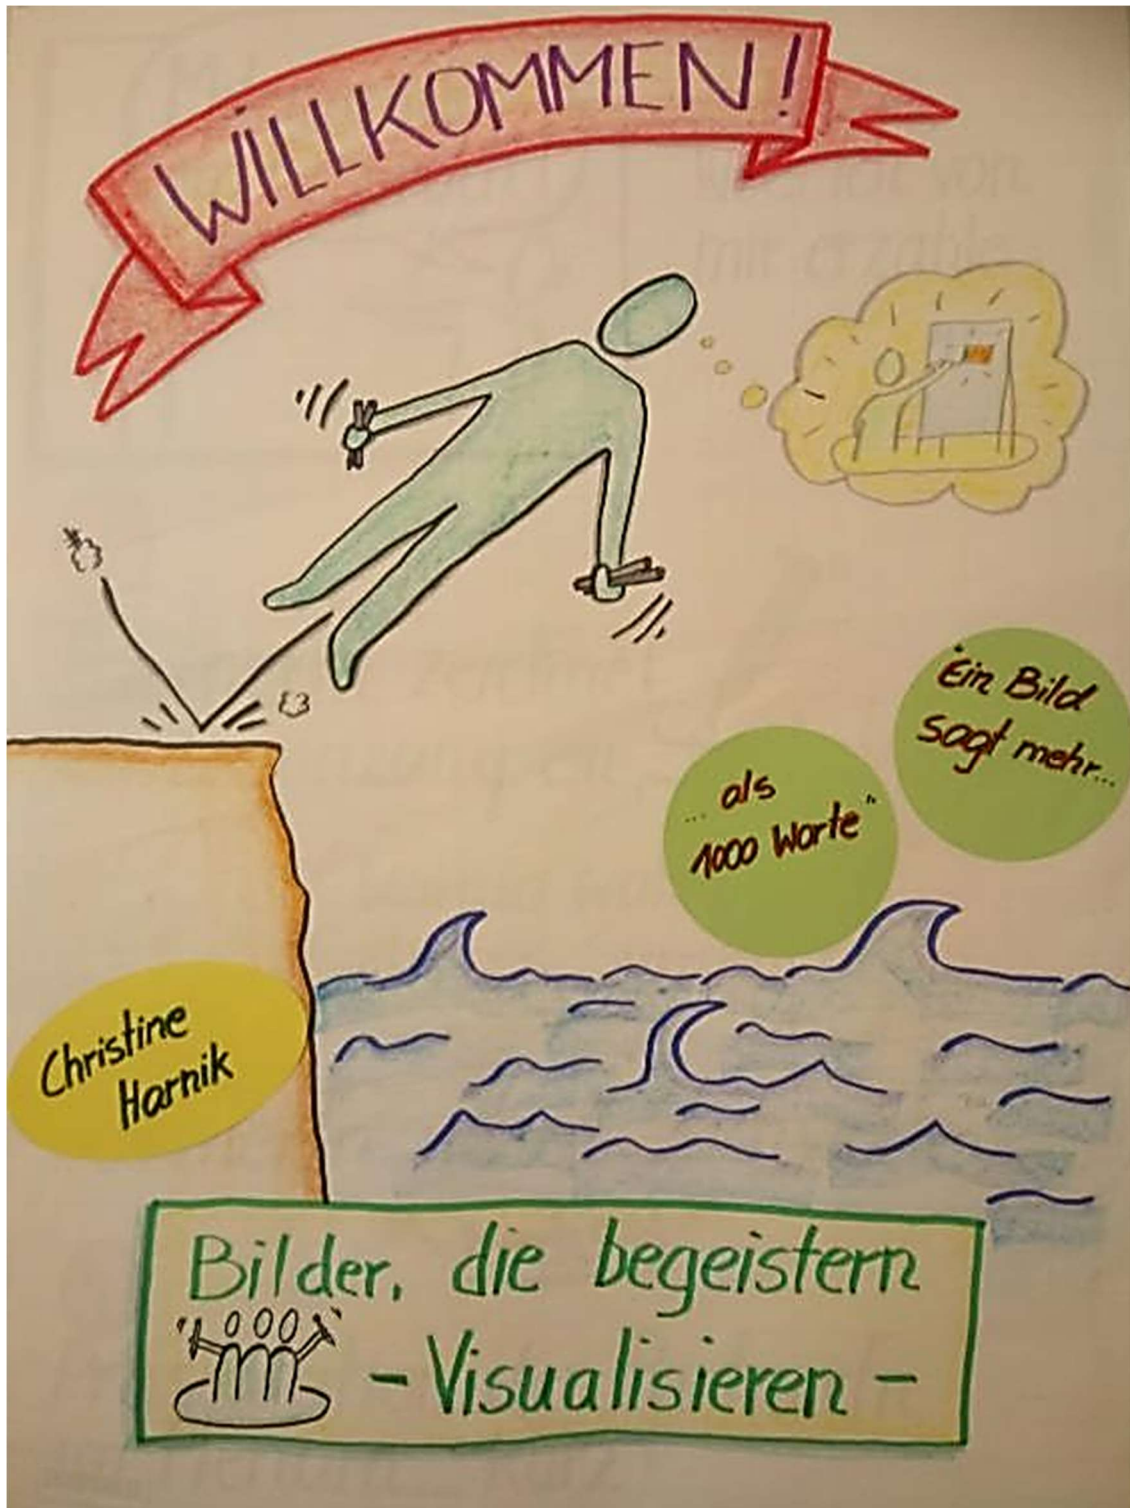 WILLKOMMEN!
"Ein Bild
sagt mehr...
... als
1000 Worte"
Christine
Harnik
Bilder, die begeistern
- Visualisieren -